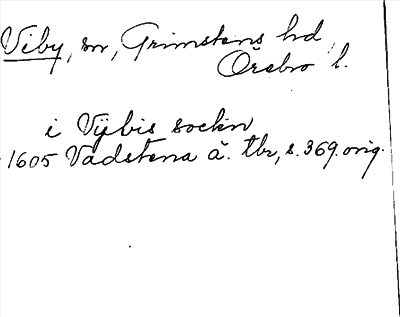 Viby, sn, Grimstens hd,
Örebro l.
i Vijbis sockn
1605 Vadstena ä. tbr, s. 369. orig.